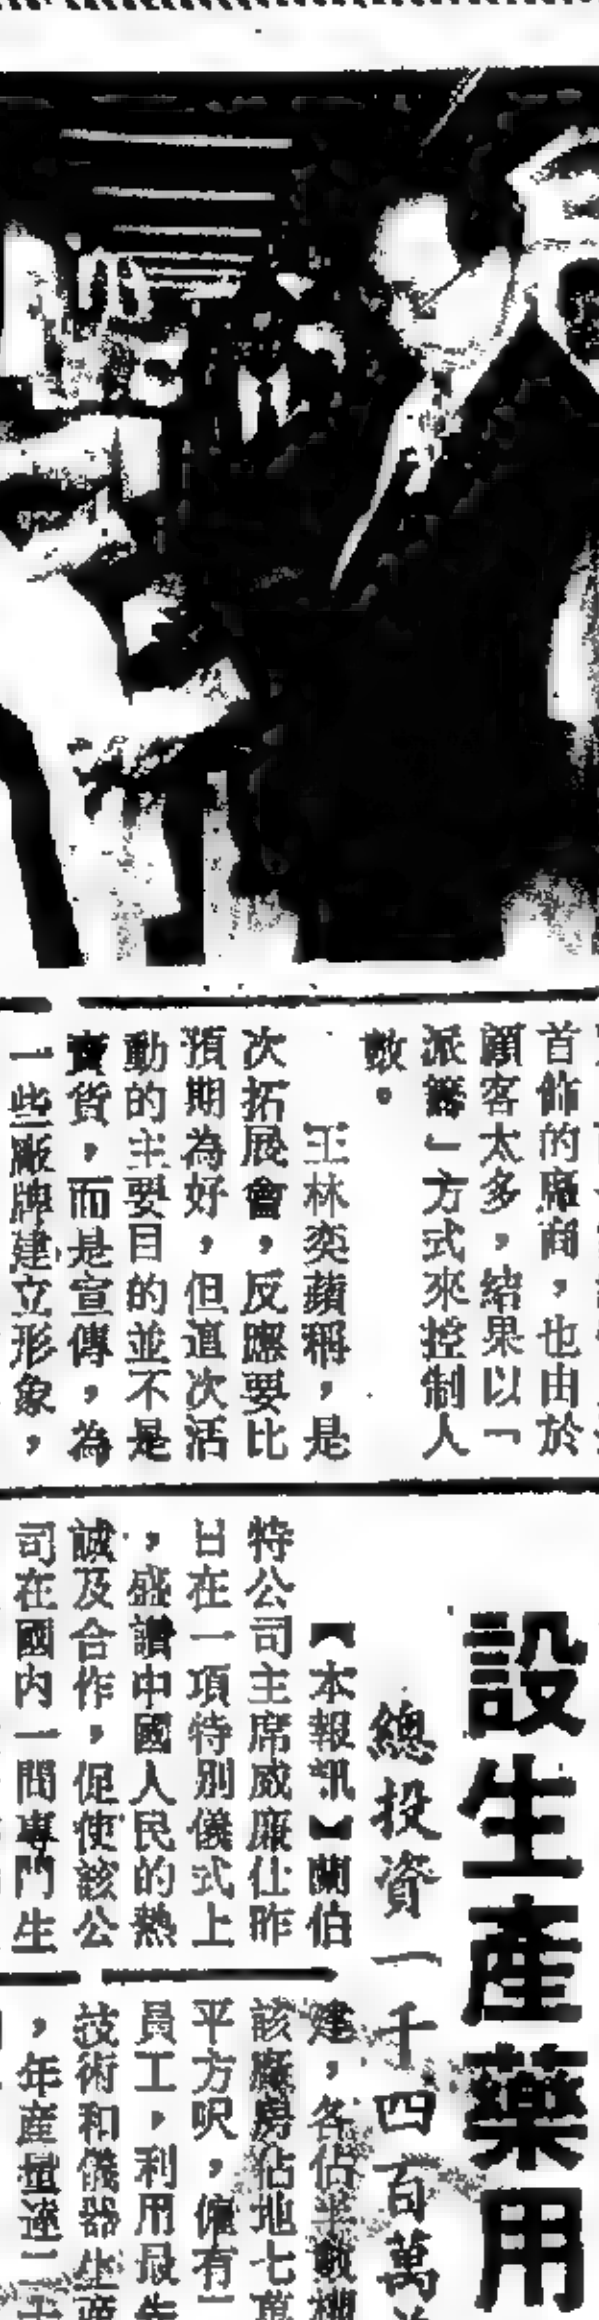 首飾的廠商，也由於
顧客太多，結果以「
派籌」方式來控制人
數。
王林奕蘋稱，是
次拓展會，反應要比
預期為好，但這次活
動的主要目的並不是
賣貨，而是宣傳，為
一些廠牌建立形象，
設生產藥用
總投資一千四百萬
【本報訊】蘭伯
特公司主席威廉仕昨
日在一項特別儀式上
，盛讚中國人民的熱
誠及合作，促使該公
司在國內一間專門生
建，各佔半數
該廠房佔地七萬
平方呎，僱有
員工，利用最先
技術和儀器生產
，年產量達二